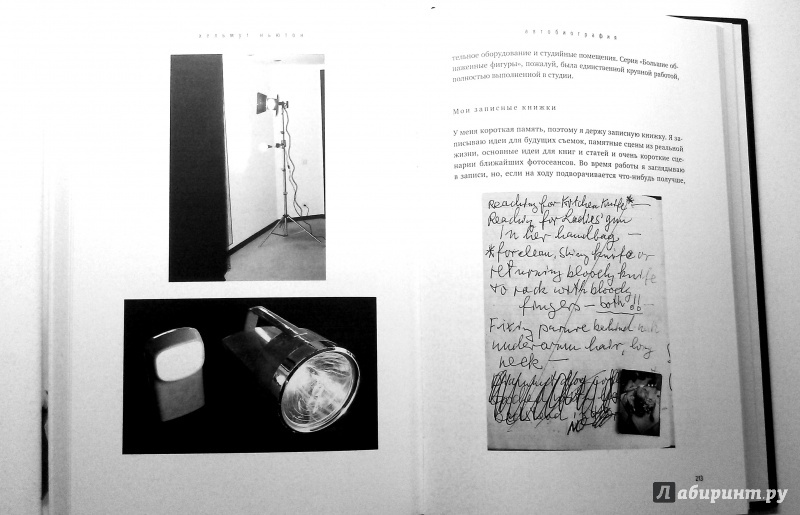 хельмут ньютон
автобиография
тельное оборудование и студийные помещения. Серия «Большие об-
наженные фигуры», пожалуй, была единственной крупной работой,
полностью выполненной в студии.
Мои записные книжки
У меня короткая память, поэтому я держу записную книжку. Я за-
писываю идеи для будущих съемок, памятные сцены из реальной
жизни, основные идеи для книг и статей и очень короткие сце-
нарии ближайших фотосеансов. Во время работы я заглядываю
в записи, но, если на ходу подворачивается что-нибудь получше,
Reaching for Kitchen Knife*—
Reaching for Ladies' gun
in her handbag —
*for clean, shiny knife or
returning bloody knife
to rack with bloody
fingers — both!! —
Fixing parure behind
underarm hair, long
neck — !
213
Лабиринт.ру